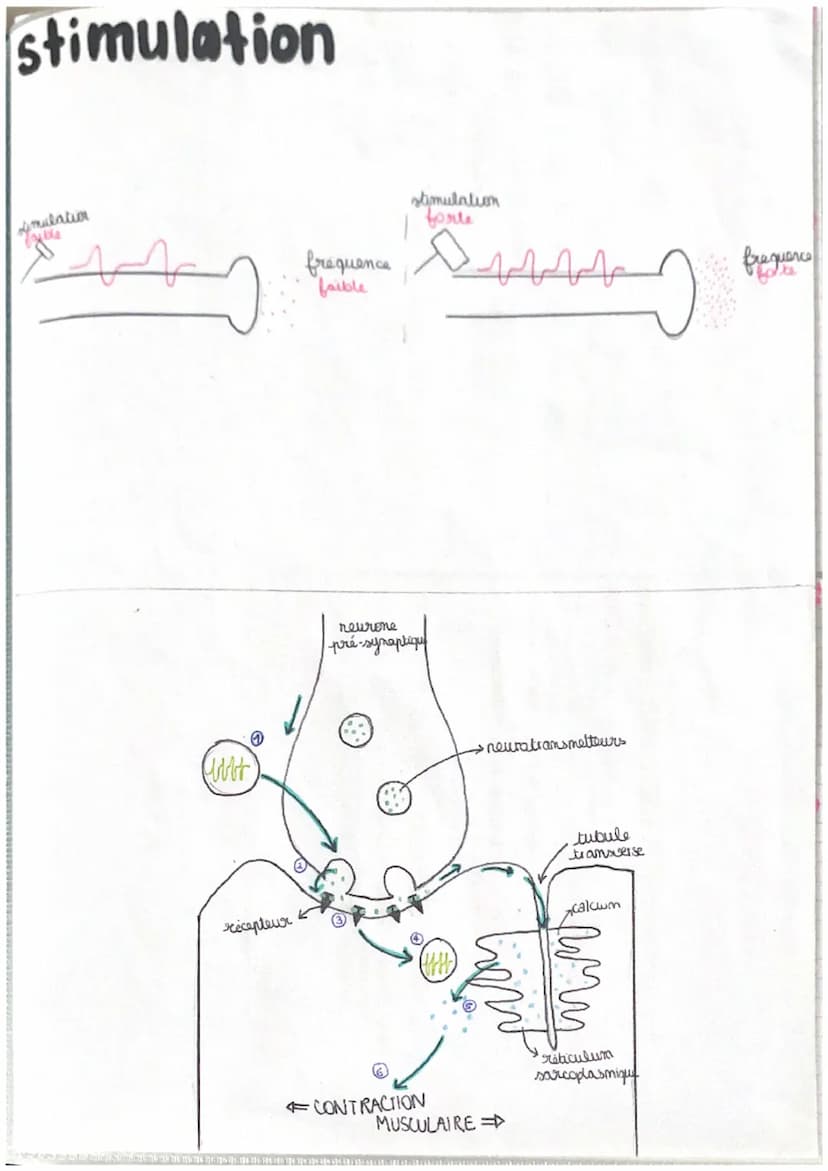 stimulation
stimulation
faible
fréquence
faible
stimulation
forte
frequence
forte
neurone
pré-synaptique
1
neurotransmetteurs
tubule
transverse
2
calcium
récepteur
3
4
5
réticulum
sarcoplasmique
6
⇐ CONTRACTION
MUSCULAIRE ⇒